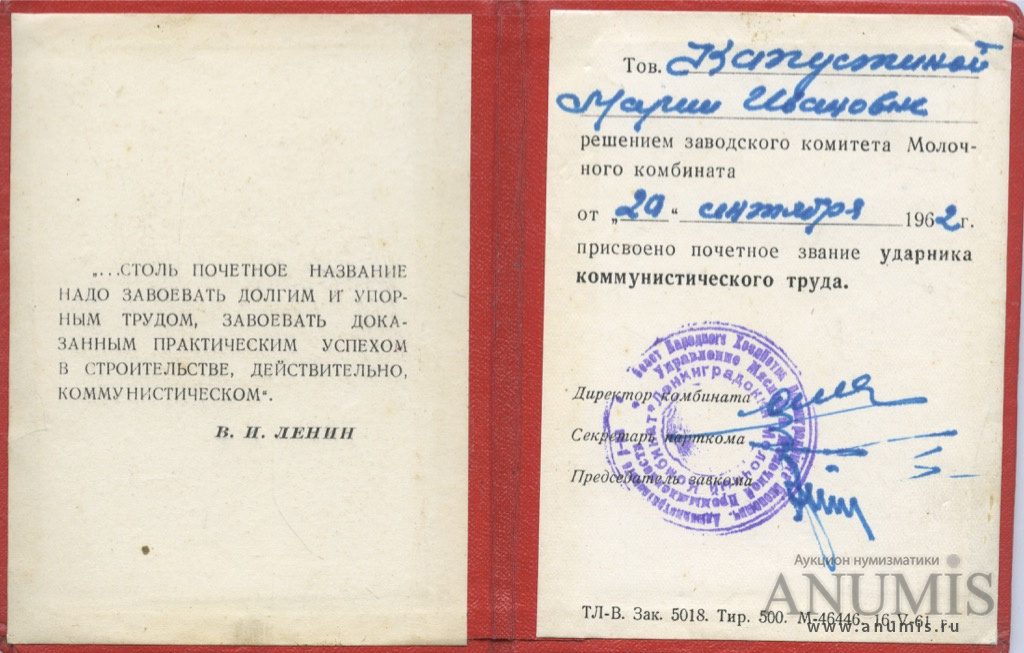 „...СТОЛЬ ПОЧЕТНОЕ НАЗВАНИЕ
НАДО ЗАВОЕВАТЬ ДОЛГИМ И УПОР-
НЫМ ТРУДОМ, ЗАВОЕВАТЬ ДОКА-
ЗАННЫМ ПРАКТИЧЕСКИМ УСПЕХОМ
В СТРОИТЕЛЬСТВЕ, ДЕЙСТВИТЕЛЬНО,
КОММУНИСТИЧЕСКОМ“.
В. И. ЛЕНИН
Тов. Капустиной
Марии Ивановне
решением заводского комитета Молоч-
ного комбината
от „20“ сентября 1962г.
присвоено почетное звание ударника
коммунистического труда.
Директор комбината
Секретарь парткома
Председатель завкома
Совет Народного Хозяйства
Управление
Молочной Промышленности
Ленинградский Молочный Комбинат
Аукцион нумизматики
ANUMIS
ТЛ-В. Зак. 5018. Тир. 500. М-46446. 16-V-61 г.
www.anumis.ru